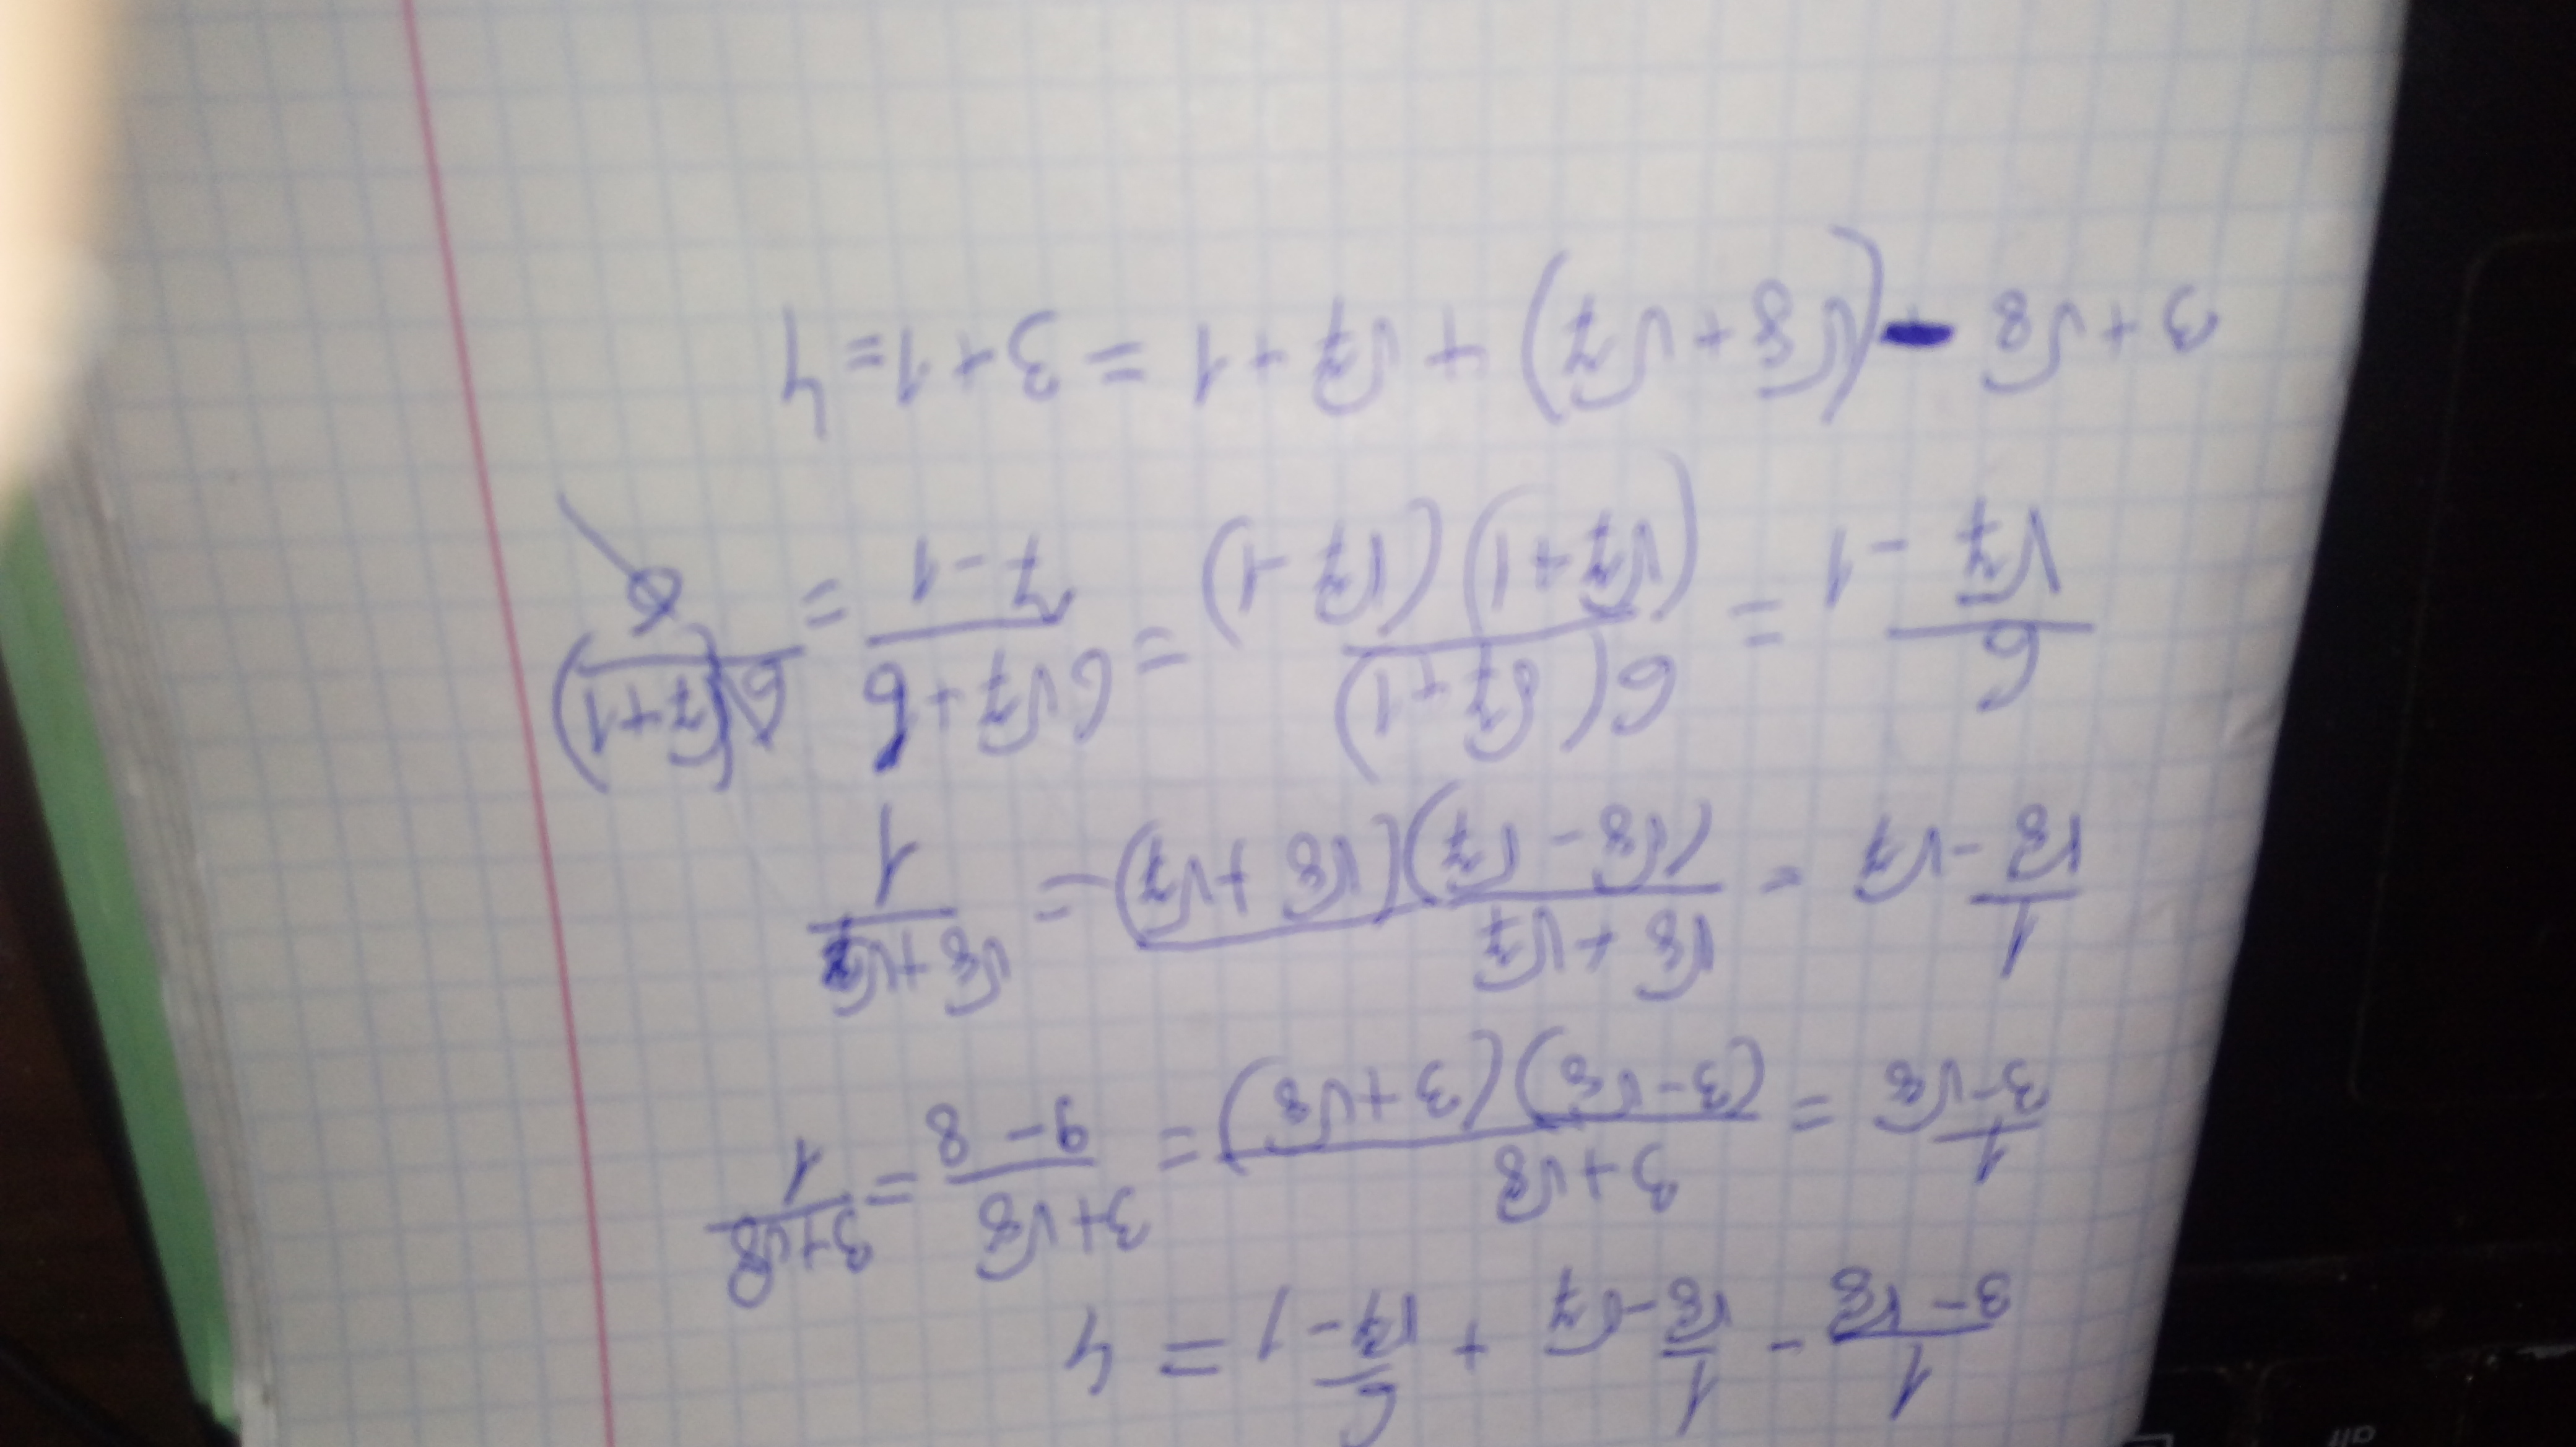 1/(3-√8) - 1/(√8-√7) + 6/(√7-1) = 4
1/(3-√8) = (3+√8)/((3-√8)(3+√8)) = (3+√8)/(9-8) = (3+√8)/1
1/(√8-√7) = (√8+√7)/((√8-√7)(√8+√7)) = (√8+√7)/1
6/(√7-1) = 6(√7+1)/((√7+1)(√7-1)) = (6√7+6)/(7-1) = 6(√7+1)/6
3+√8-(√8+√7)+√7+1=3+1=4
alt